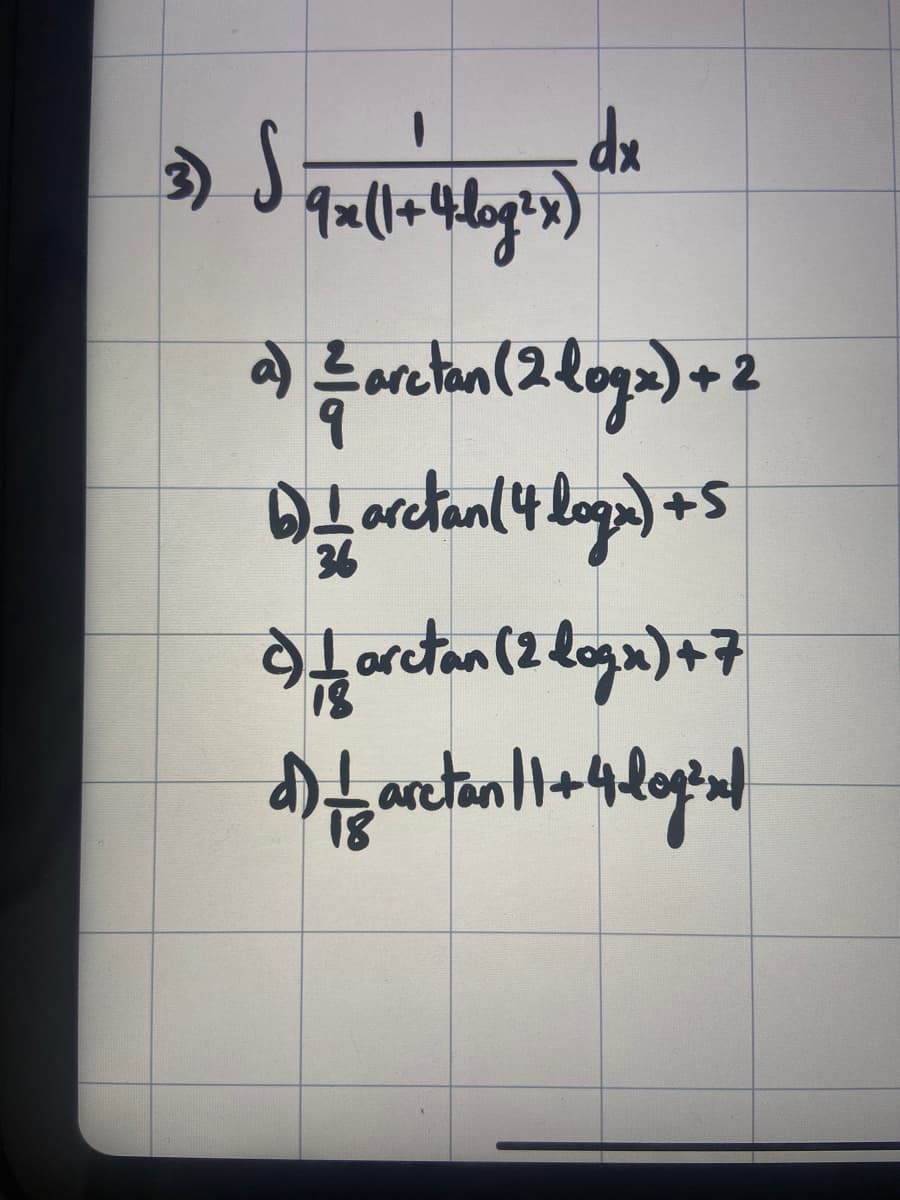 3) ∫ 1/(9x(1+4log²x)) dx
a) 2/9 arctan(2logx)+2
b) 1/36 arctan(4logx)+5
c) 1/18 arctan(2logx)+7
d) 1/18 arctan|1+4log²x|